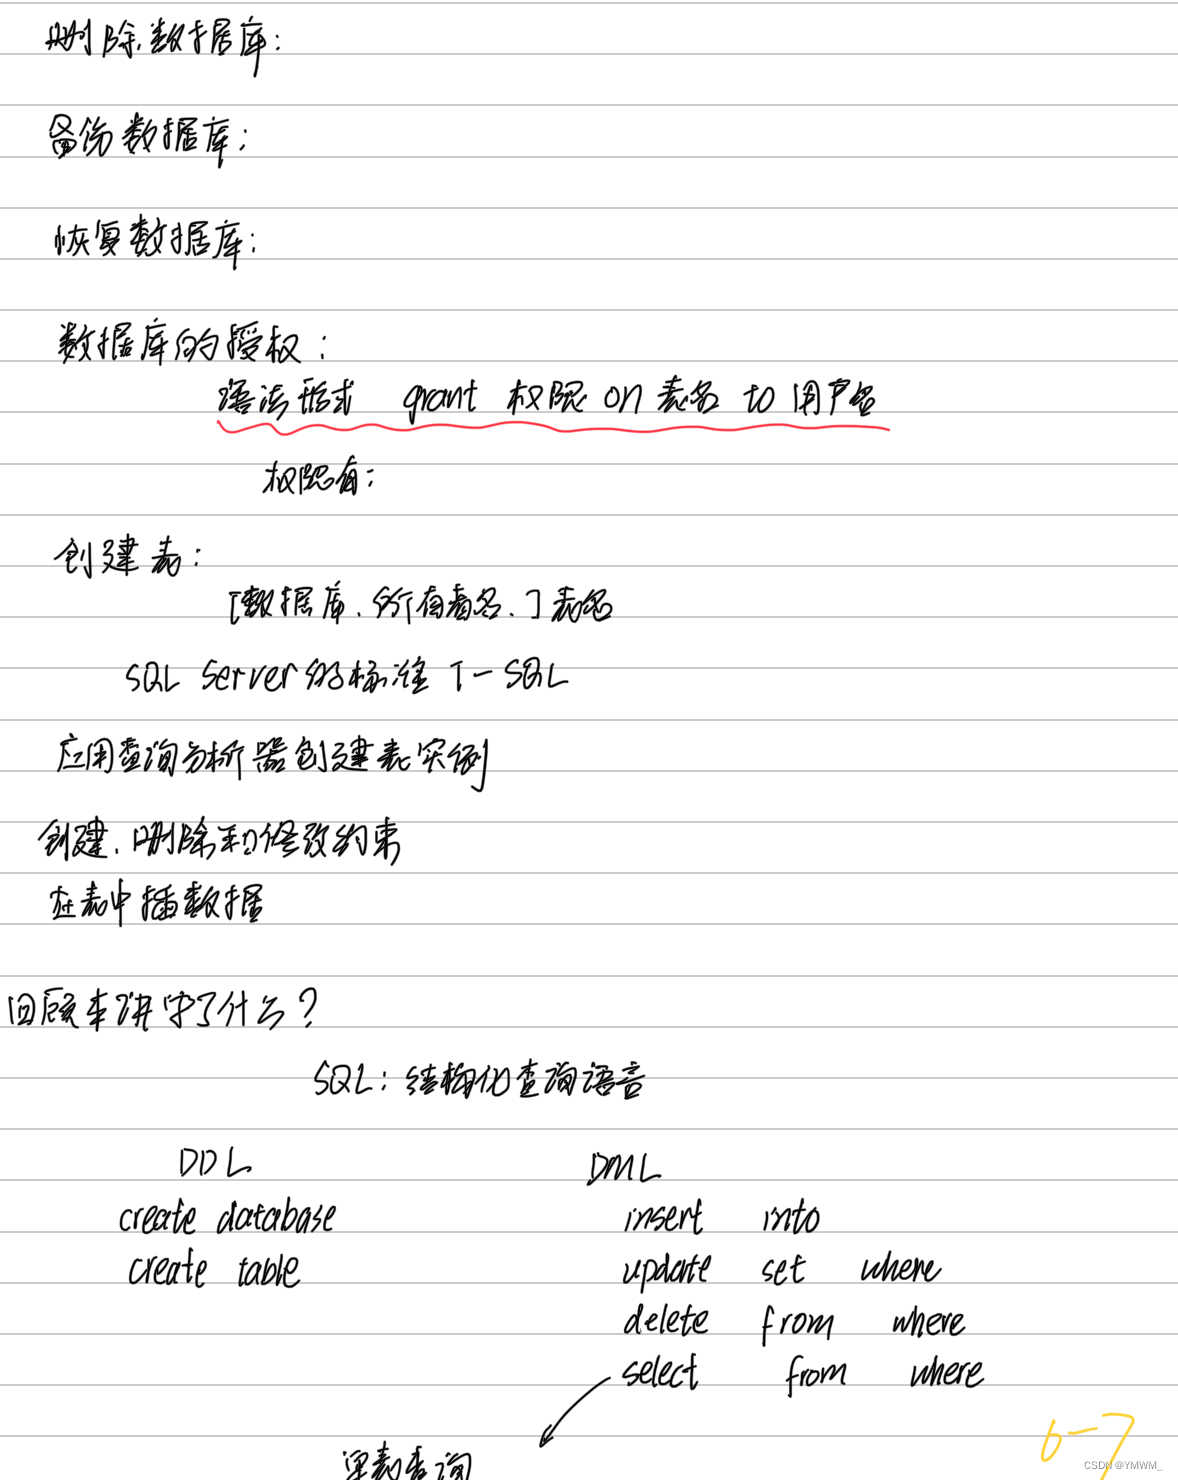 删除数据库:
备份数据库:
恢复数据库:
数据库的授权:
语法形式 grant 权限 on 表名 to 用户名
权限有:
创建表:
[数据库.所有者名.]表名
SQL Server的标准 T-SQL
应用查询分析器创建表实例
创建.删除和修改约束
在表中插数据
回顾本讲学了什么?
SQL:结构化查询语言
DDL DML
create database insert into
create table update set where
delete from where
select from where
单表查询
6-7
CSDN @YMWM_